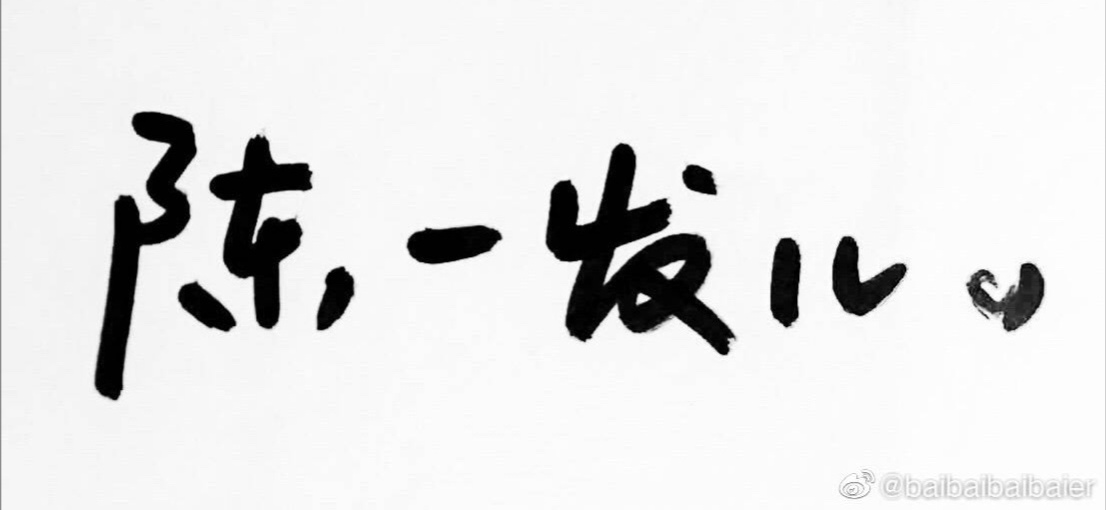 陈一发儿。
@baibaibaibaier